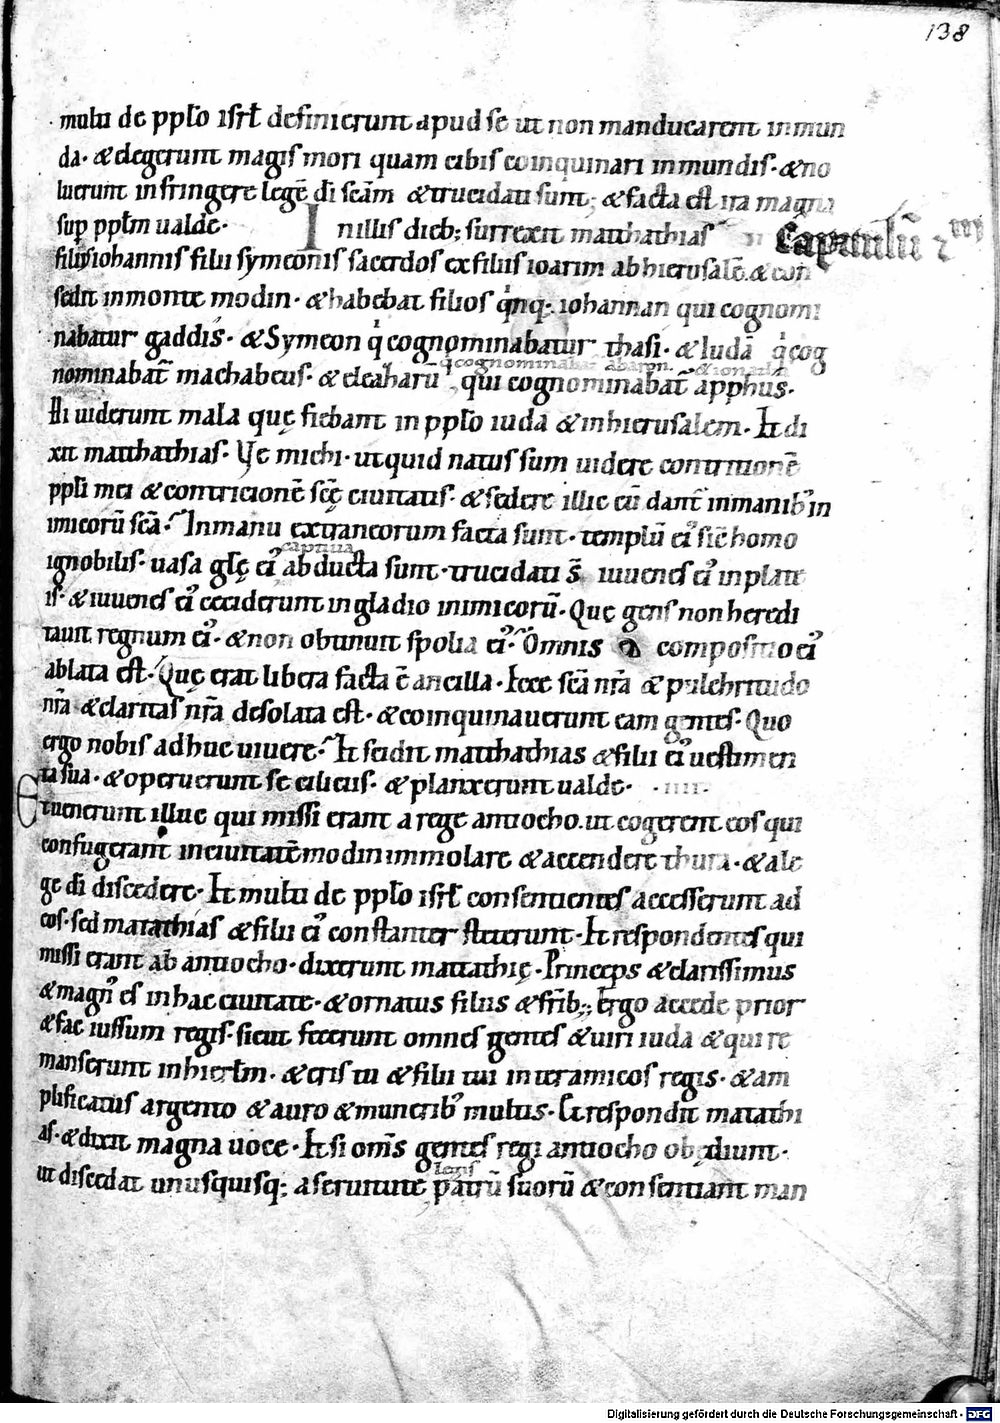 138
multi de pplo isrl definierunt apud se ut non manducarent inmun
da· & elegerunt magis mori quam cibis coinquinari inmundis· & no
luerunt infringere legē dī scām & trucidati sunt; & facta est ira magna
sup pplm ualde·
In illis dieb; surrexit matthathias
Capitulū 2
filius iohannis filii symeonis sacerdos ex filiis ioarim ab hierusalē· & con
sedit in monte modin· & habebat filios qnq;· iohannan qui cognomi
nabatur gaddis· & Symeon q cognominabatur thasi· & Iudā q cog
q cognominabat abaron· & ionatha
nominabat machabeus· & eleaharū qui cognominabat apphus·
Hi uiderunt mala quę fiebant in pplo iuda & in hierusalem· Et di
xit matthathias· Ve michi· ut quid natus sum uidere contritionē
ppli mei & contricionē scę ciuitatis· & sedere illic cū dant in manib; in
imicorū scā· In manu extraneorum facta sunt· templū ei sic homo
captiua
ignobilis· uasa glę ei abducta sunt· trucidati s iuuenes ei in plate
is· & iuuenes ei ceciderunt in gladio inimicorū· Quę gens non heredi
tauit regnum ei· & non obtinuit spolia ei· Omnis compositio ei
ablata est· Quę erat libera facta ē ancilla· Ecce scā nrā & pulchritudo
nrā & claritas nrā desolata est· & coinquinauerunt eam gentes· Quo
ergo nobis adhuc uiuere· Et scidit matthathias & filii ei uestimen
ta sua· & operuerunt se ciliciis· & planxerunt ualde·
Et uenerunt illuc qui missi erant a rege antiocho· ut cogerent eos qui
confugerant in ciuitatē modin immolare & accendere thura· & a le
ge dī discedere· Et multi de pplo isrl consentientes accesserunt ad
eos· sed matathias & filii ei constanter steterunt· Et respondentes qui
missi erant ab antiocho· dixerunt mattathię· Princeps & clarissimus
& magn es in hac ciuitate· & ornatus filiis & frib;; Ergo accede prior
& fac iussum regis· sicut fecerunt omnes gentes & uiri iuda & qui re
manserunt in hierlm· & eris tu & filii tui inter amicos regis· & am
plificatus argento & auro & munerib; multis· Et respondit matathi
as· & dixit magna uoce· Et si oms gentes regi antiocho obędiunt·
legis
ut discedat unusquisq; a seruitute patrū suorū & consentiant man
Digitalisierung gefördert durch die Deutsche Forschungsgemeinschaft - DFG